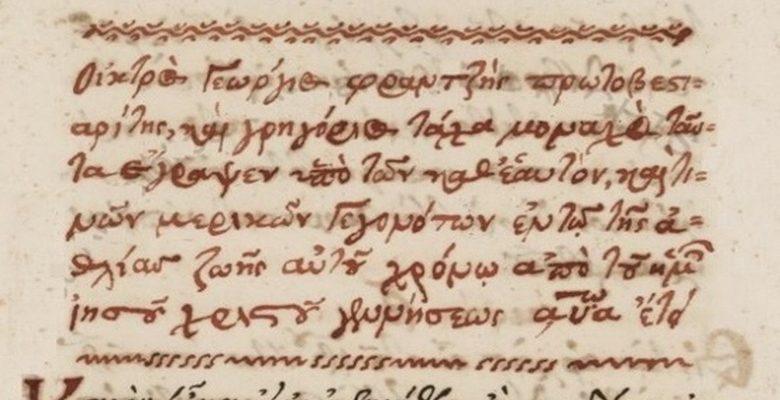 Οἰκτρὸς Γεώργιος φραντζῆς πρωτοβεστι=
αρίτης, καὶ γρηγόριος τάχα μοναχὸς ταῦ=
τα ἔγραψεν ὑπὲρ τῶν καθ' ἑαυτὸν, καὶ τι=
νῶν μερικῶν γεγονότων ἐν τῷ τῆς ἀ=
θλίας ζωῆς αὐτοῦ χρόνῳ ἀπὸ τοῦ κυρίου ἡμῶν
ἰησοῦ χριστοῦ γεννήσεως αυα ἔτει